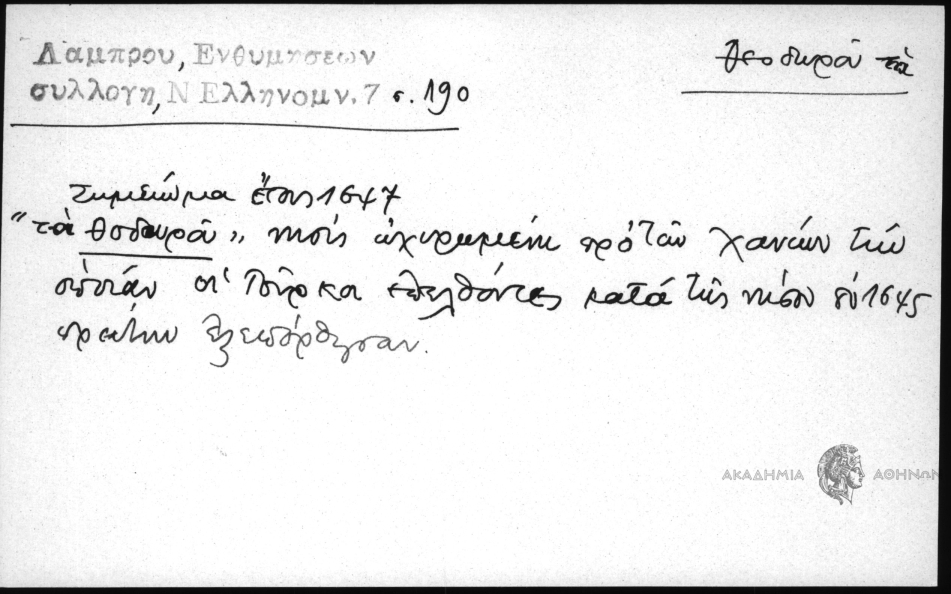 Λαμπρου, Ενθυμησεων
συλλογη, Ν Ελληνομν. 7 σ. 190
Θεοδωροῦ τὰ
Σημείωμα ἔτους 1647
"τὰ Θοδωροῦ" νησὶς ὠχυρωμένη πρὸ τῶν Χανίων τὴν
ὁποίαν οἱ Τοῦρκοι ἐπελθόντες κατὰ τῆς νήσου τῷ 1645
πρώτην ἐξεπόρθησαν.
ΑΚΑΔΗΜΙΑ ΑΘΗΝΩΝ